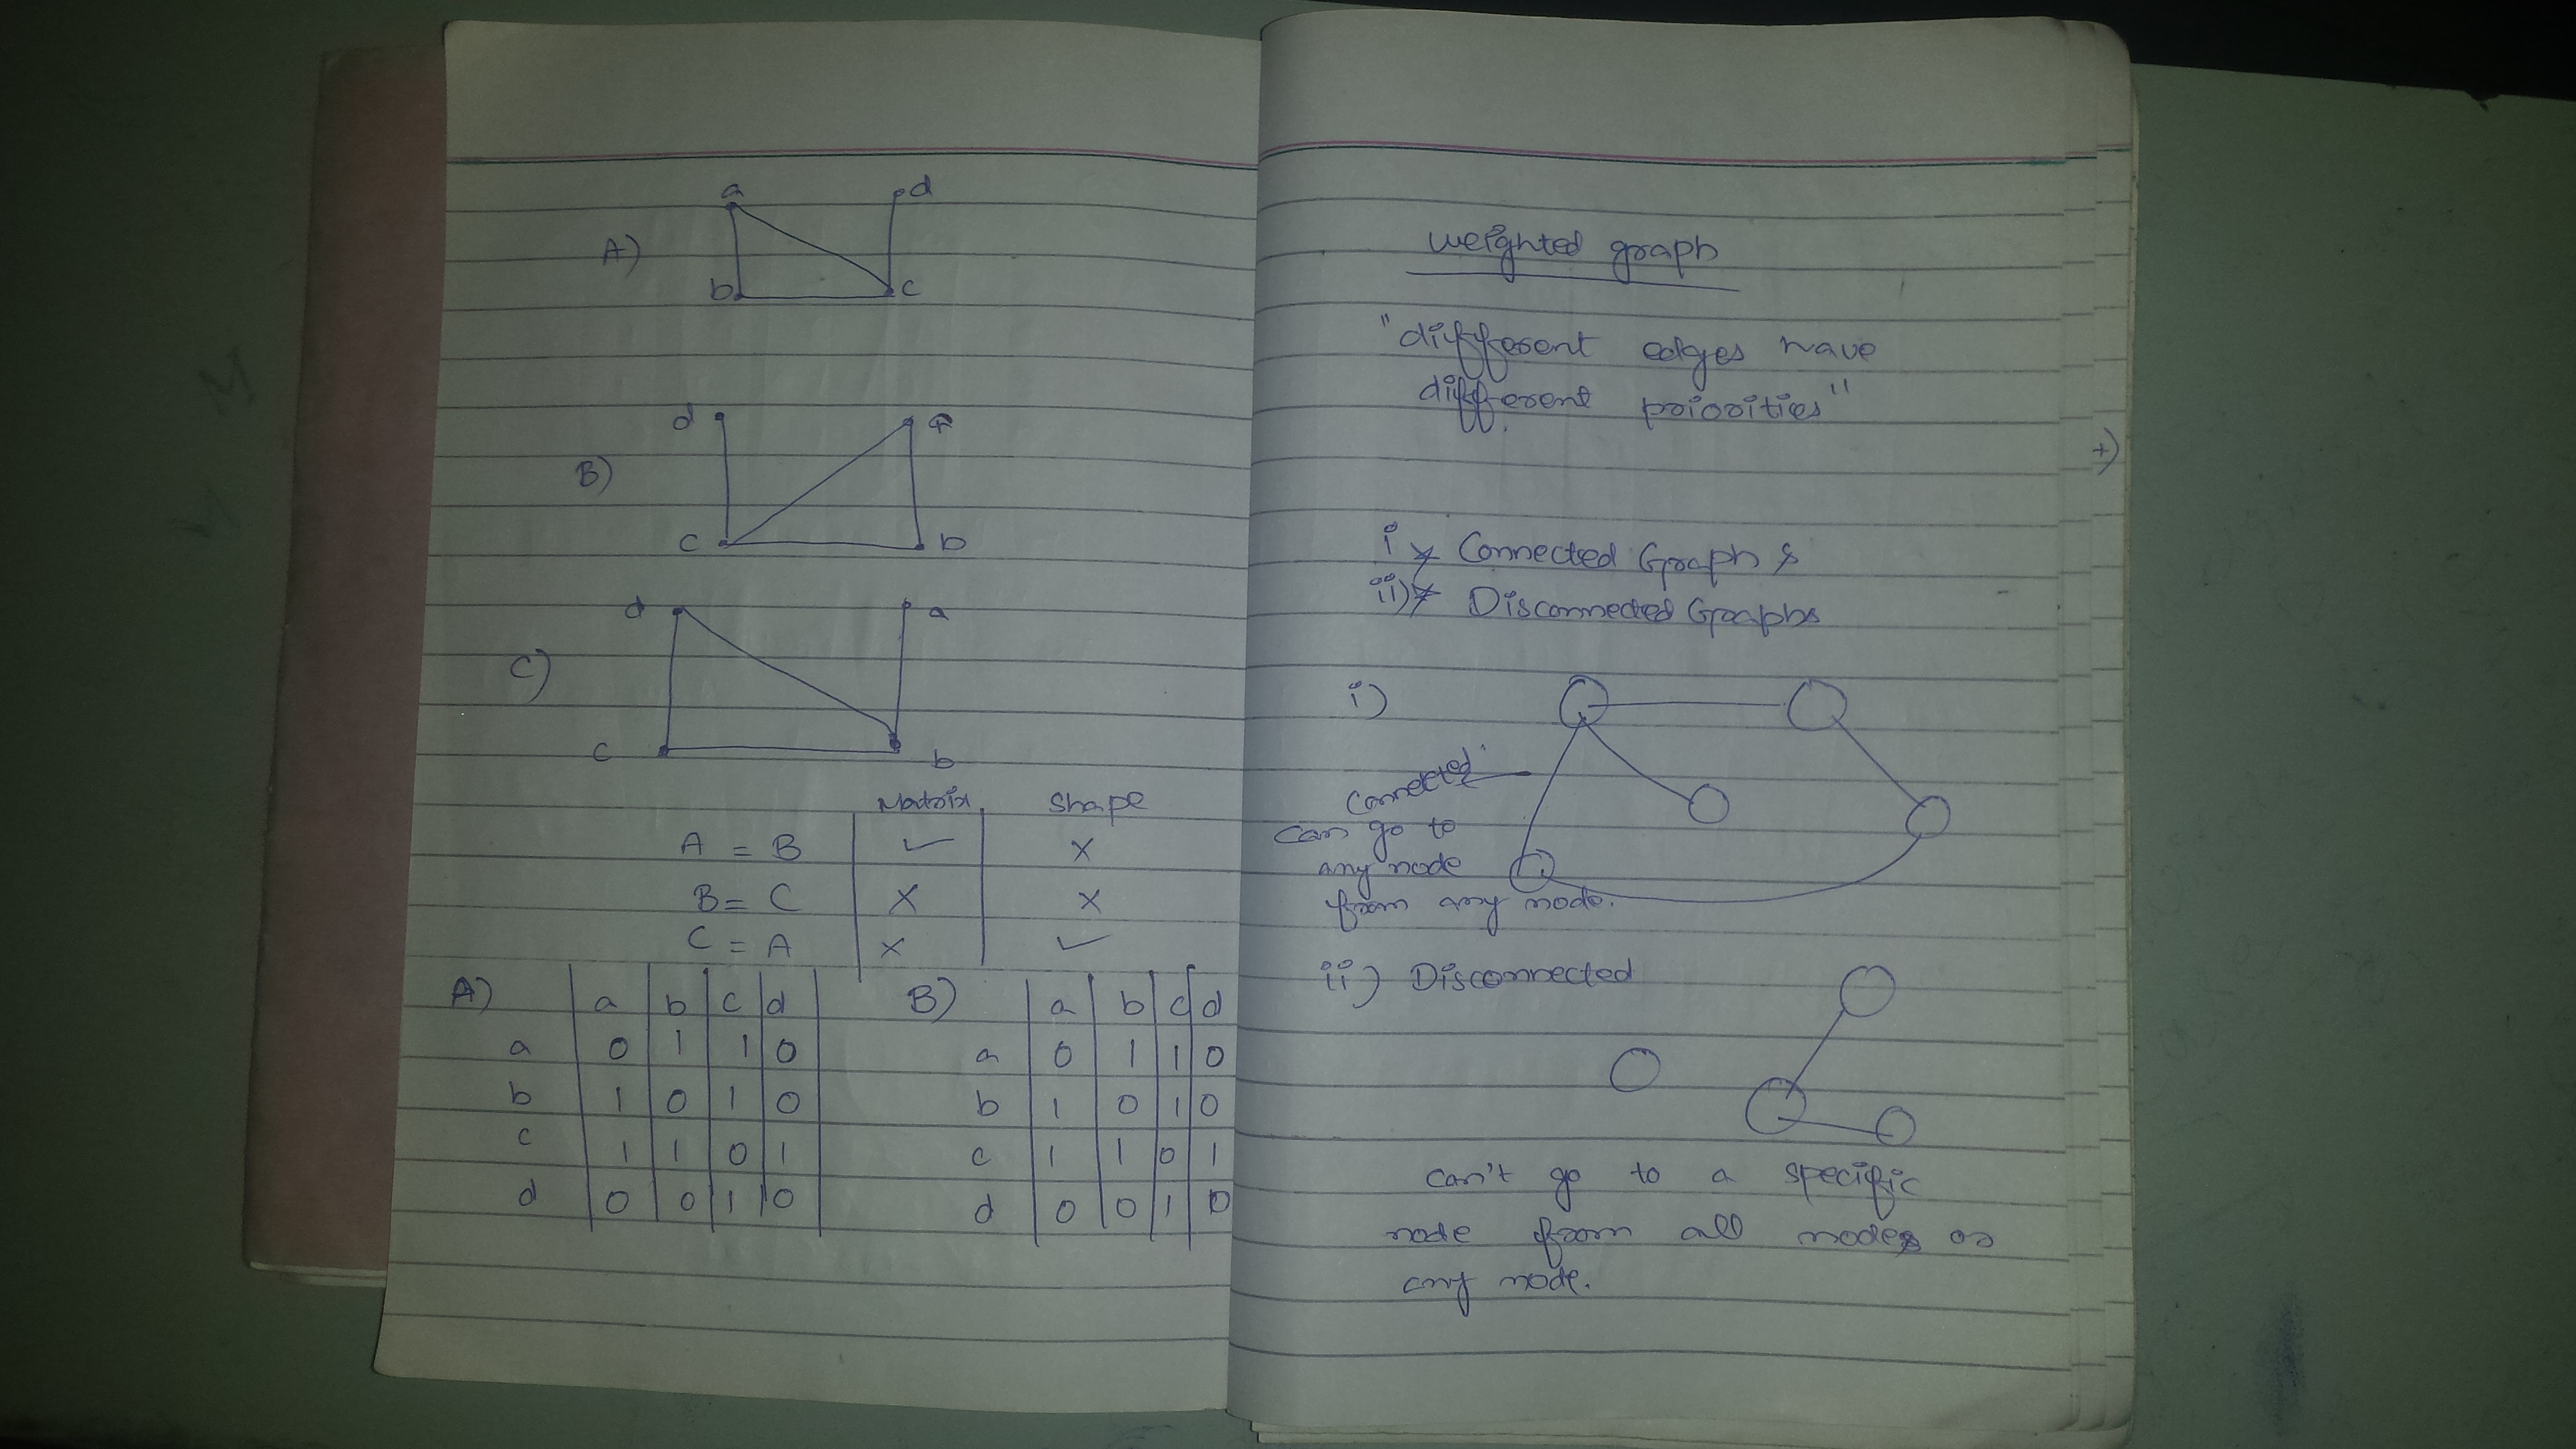 a d
A)
b c
d a
B)
c b
d a
C)
c b
Matrix Shape
A = B ✓ ×
B = C × ×
C = A × ✓
A) a b c d
a 0 1 1 0
b 1 0 1 0
c 1 1 0 1
d 0 0 1 0
B) a b c d
a 0 1 1 0
b 1 0 1 0
c 1 1 0 1
d 0 0 1 0
weighted graph
"different edges have
different priorities"
i Connected Graph &
ii) Disconnected Graphs
i)
Connected
can go to
any node
from any node.
ii) Disconnected
can't go to a specific
node from all nodes or
any node.
+)